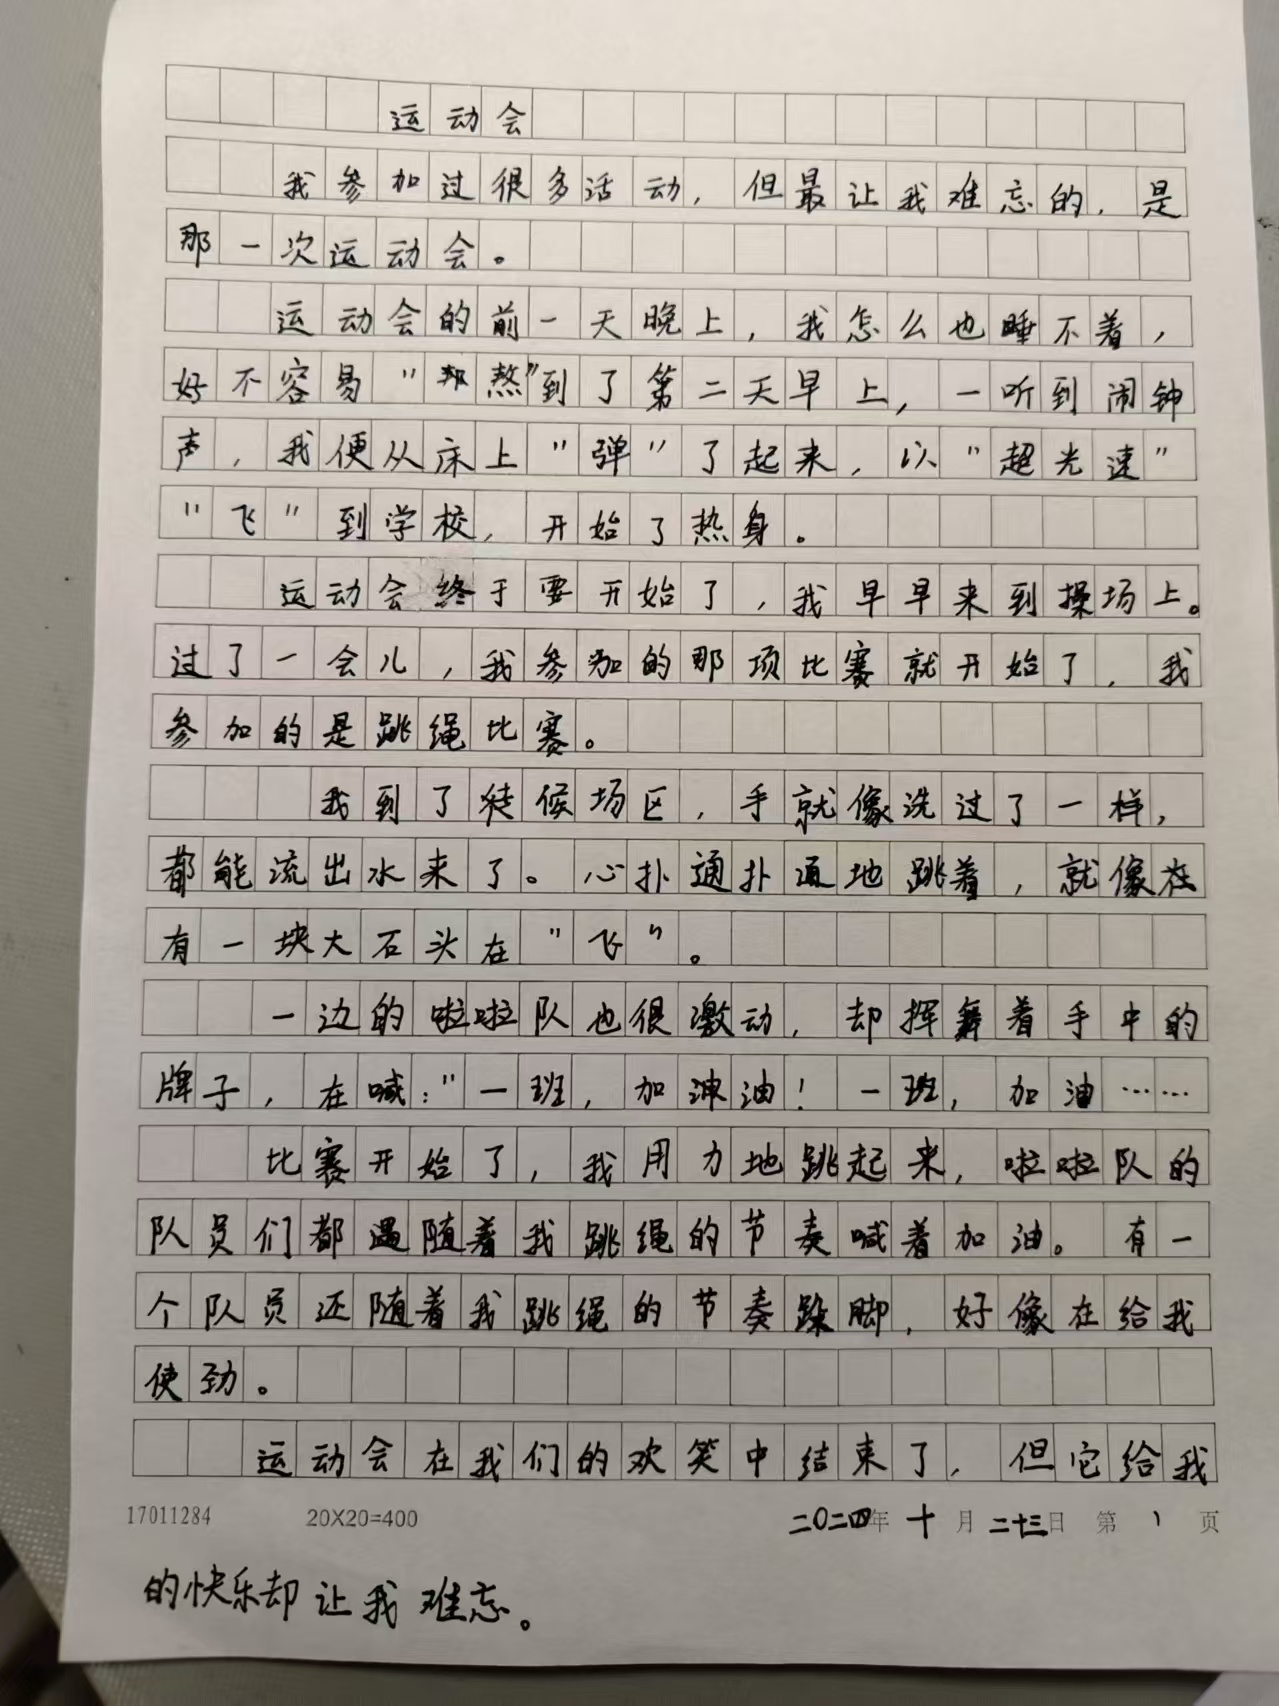 运动会
我参加过很多活动，但最让我难忘的，是
那一次运动会。
运动会的前一天晚上，我怎么也睡不着，
好不容易“熬”到了第二天早上，一听到闹钟
声，我便从床上“弹”了起来，以“超光速”
“飞”到学校，开始了热身。
运动会终于要开始了，我早早来到操场上。
过了一会儿，我参加的那项比赛就开始了，我
参加的是跳绳比赛。
我到了候场区，手就像洗过了一样，
都能流出水来了。心扑通扑通地跳着，就像在
有一块大石头在“飞”。
一边的啦啦队也很激动，却挥舞着手中的
牌子，在喊：“一班，加油！一班，加油……
比赛开始了，我用力地跳起来，啦啦队的
队员们都随着我跳绳的节奏喊着加油。有一
个队员还随着我跳绳的节奏跺脚，好像在给我
使劲。
运动会在我们的欢笑中结束了，但它给我
17011284 20X20=400 二〇二四年十月二十三日 第1页
的快乐却让我难忘。